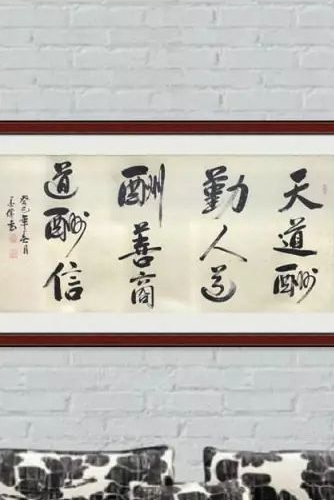 天道酬
勤人道
酬善商
道酬信
癸巳年